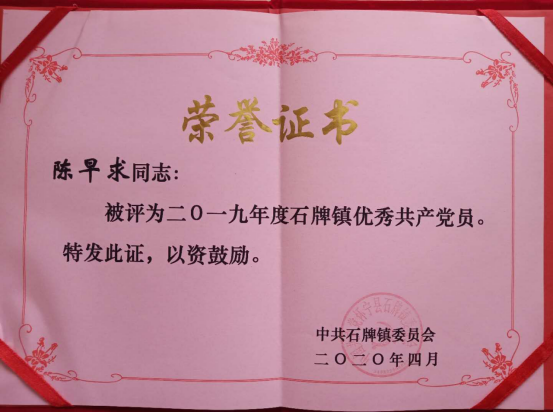 荣誉证书
陈早求同志:
被评为二〇一九年度石牌镇优秀共产党员。
特发此证,以资鼓励。
中共石牌镇委员会
二〇二〇年四月